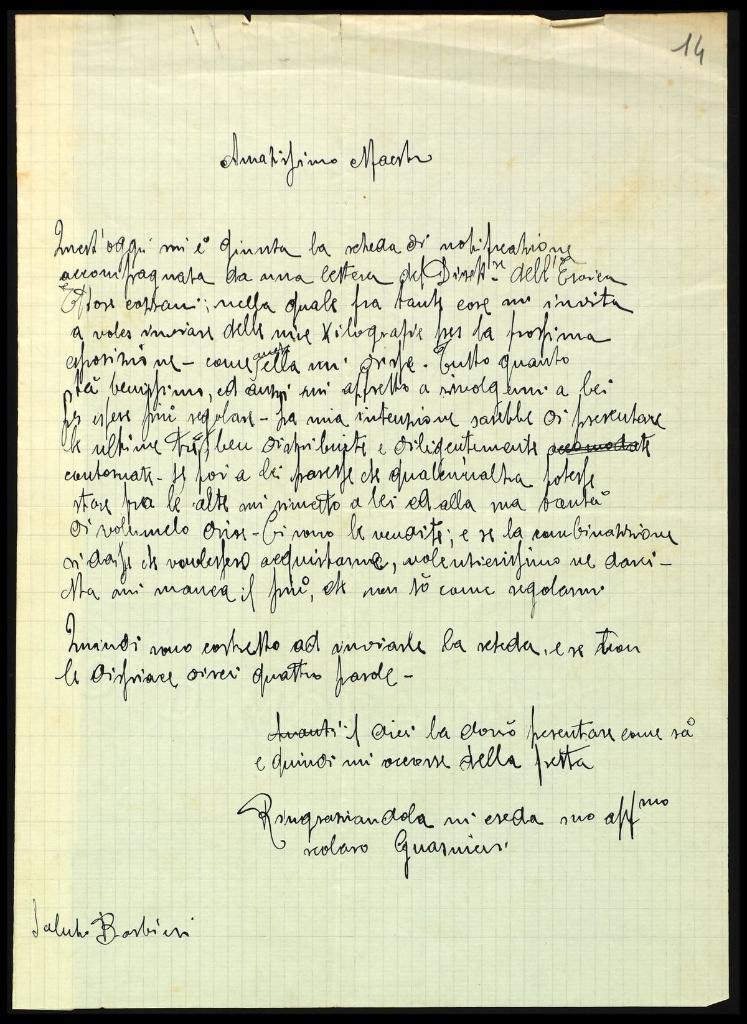 14
Amatissimo Maestro
Quest'oggi mi è giunta la scheda di notificazione
accompagnata da una lettera del Dirett.re dell'Eroica
Ettore cozzani; nella quale fra tante cose mi invita
a voler inviare delle mie Xilografie per la prossima
esposizione - come anche ella mi disse. Tutto quanto
stà benissimo, ed anzi mi affretto a rivolgermi a lei
per essere più regolare - La mia intenzione sarebbe di presentare
le ultime tre, ben distribuite e diligentemente accomodate
contornate - Se poi a lei paresse che qualcun'altra potesse
stare fra le altre mi rimetto a lei ed alla sua bontà
di volermelo dire - Ci sono le vendite; e se la combinazione
si dasse che volessero acquistarne, volentierissimo ne darei -
Ma mi manca il più, che non sò come regolarmi
Quindi sono costretto ad inviarle la scheda, e se non
le dispiace dirci quattro parole -
Avanti il dieci la dovrò presentare come sà
e quindi mi occorre della fretta
Ringraziandola mi creda suo aff.mo
scolaro Guarnieri
Saluti Barbieri